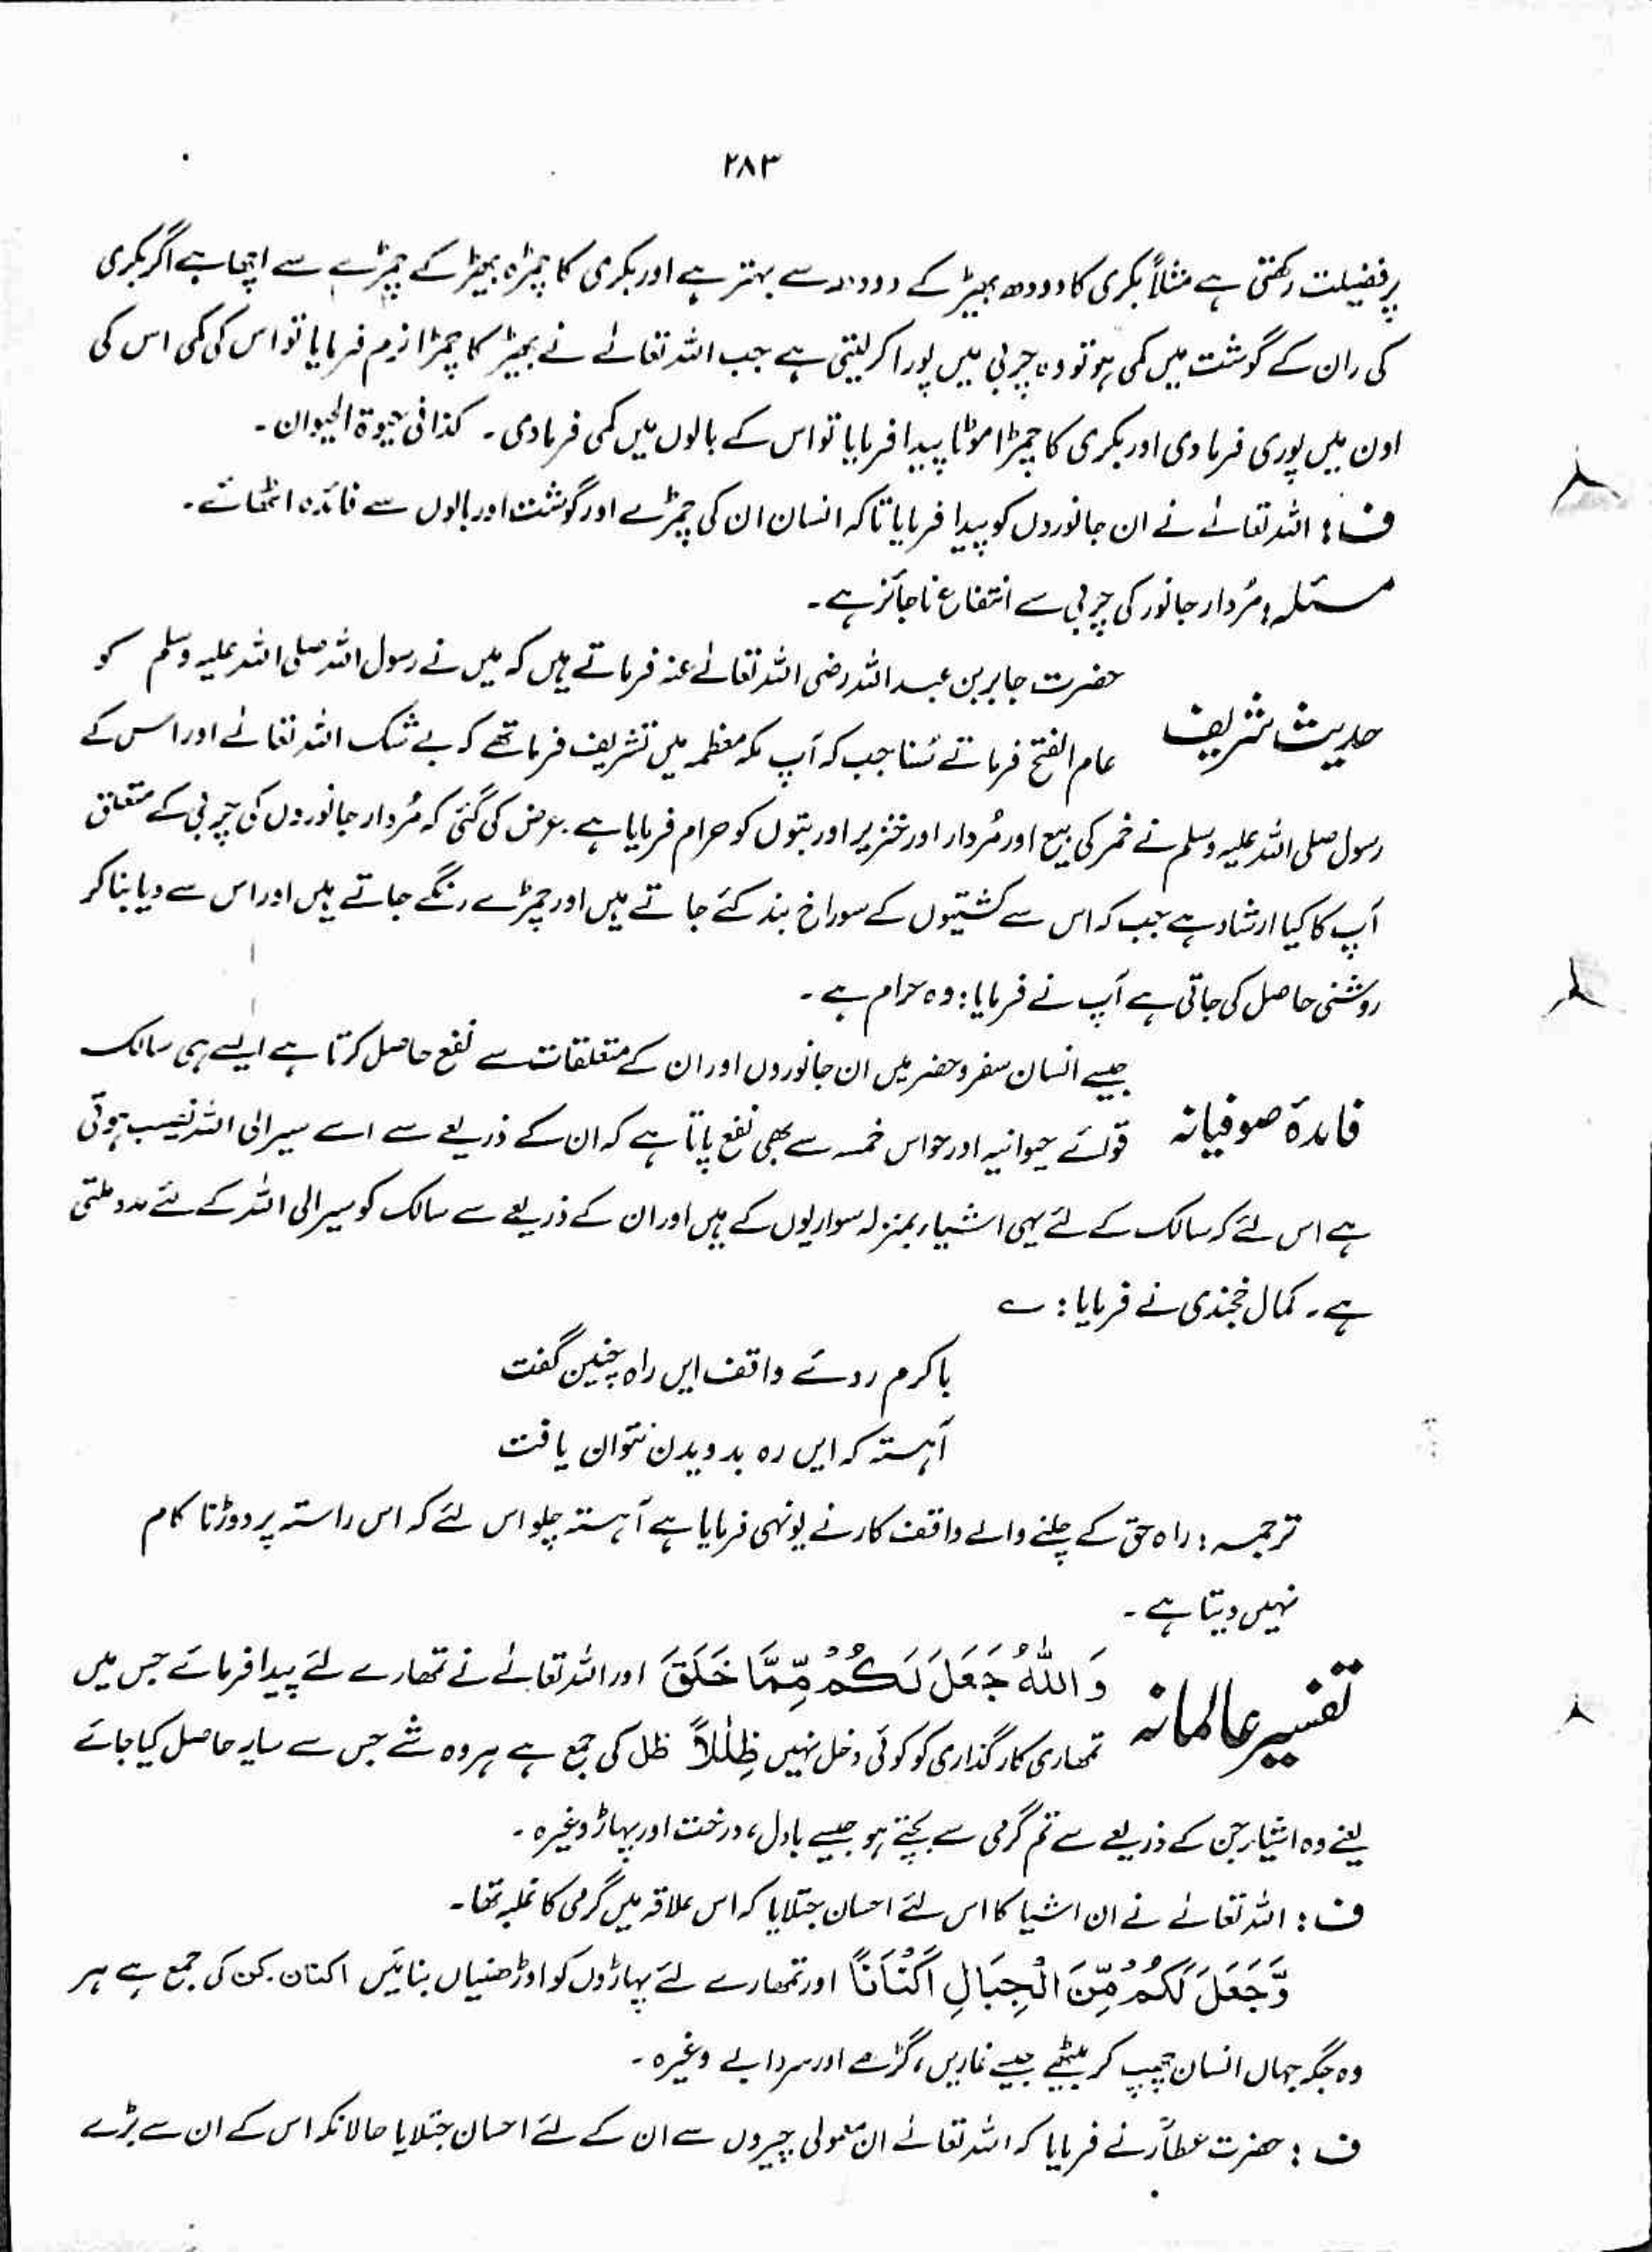 ۲۸۳
پر فضیلت رکھتی ہے مثلاً بکری کا دودھ بھیڑ کے دودھ سے بہتر ہے اور بکری کا چمڑہ بھیڑ کے چمڑے سے اچھا ہے اگر بکری
کی ران کے گوشت میں کمی ہو تو وہ چربی میں پورا کر لیتی ہے جب اللہ تعالےٰ نے بھیڑ کا چمڑا نرم فرمایا تو اس کی کمی اس کی
اون میں پوری فرما دی اور بکری کا چمڑا موٹا پیدا فرمایا تو اس کے بالوں میں کمی فرمادی۔ کذا فی حیوۃ الحیوان۔
ف: اللہ تعالےٰ نے ان جانوروں کو پیدا فرمایا تاکہ انسان ان کی چمڑے اور گوشت اور بالوں سے فائدہ اٹھائے۔
مسئلہ: مُردار جانور کی چربی سے انتفاع ناجائز ہے۔
حدیث شریف حضرت جابر بن عبد اللہ رضی اللہ تعالےٰ عنہ فرماتے ہیں کہ میں نے رسول اللہ صلی اللہ علیہ وسلم کو
عام الفتح فرماتے سُنا جب کہ آپ مکہ معظمہ میں تشریف فرما تھے کہ بے شک اللہ تعالےٰ اور اس کے
رسول صلی اللہ علیہ وسلم نے خمر کی بیع اور مُردار اور خنزیر اور بتوں کو حرام فرمایا ہے۔ عرض کی گئی کہ مُردار جانوروں کی چربی کے متعلق
آپ کا کیا ارشاد ہے جب کہ اس سے کشتیوں کے سوراخ بند کئے جاتے ہیں اور چمڑے رنگے جاتے ہیں اور اس سے دیا بنا کر
روشنی حاصل کی جاتی ہے آپ نے فرمایا: وہ حرام ہے۔
فائدۂ صوفیانہ جیسے انسان سفر و حضر میں ان جانوروں اور ان کے متعلقات سے نفع حاصل کرتا ہے ایسے ہی سالک
قوائے حیوانیہ اور حواس خمسہ سے بھی نفع پاتا ہے کہ ان کے ذریعے سے اسے سیر الی اللہ نصیب ہوتی
ہے اس لئے کہ سالک کے لئے یہی اشیاء بمنزلہ سواریوں کے ہیں اور ان کے ذریعے سے سالک کو سیر الی اللہ کے لئے مدد ملتی
ہے۔ کمال خجندی نے فرمایا: ؎
با کرم روئے واقف ایں راہ چنین گفت
آہستہ کہ ایں رہ بدویدن نتوان یافت
ترجمہ: راہ حق کے چلنے والے واقف کار نے یونہی فرمایا ہے آہستہ چلو اس لئے کہ اس راستہ پر دوڑنا کام
نہیں دیتا ہے۔
تفسیر عالمانہ وَاللّٰهُ جَعَلَ لَكُمْ مِّمَّا خَلَقَ اور اللہ تعالےٰ نے تمھارے لئے پیدا فرمائے جس میں
تمھاری کارگذاری کو کوئی دخل نہیں ظِلٰلاً ظل کی جمع ہے ہر وہ شے جس سے سایہ حاصل کیا جائے
یعنے وہ اشیاء جن کے ذریعے سے تم گرمی سے بچتے ہو جیسے بادل، درخت اور پہاڑ وغیرہ۔
ف: اللہ تعالےٰ نے ان اشیا کا اس لئے احسان جتلایا کہ اس علاقہ میں گرمی کا غلبہ تھا۔
وَّجَعَلَ لَكُمْ مِّنَ الْجِبَالِ اَكْنَانًا اور تمھارے لئے پہاڑوں کو اوڑھنیاں بنائیں اکنان۔ کن کی جمع ہے ہر
وہ جگہ جہاں انسان چھپ کر بیٹھے جیسے غاریں، گڑھے اور سردابے وغیرہ۔
ف: حضرت عطاؒر نے فرمایا کہ اللہ تعالےٰ ان معمولی چیزوں سے ان کے لئے احسان جتلایا حالانکہ اس کے ان سے بڑے